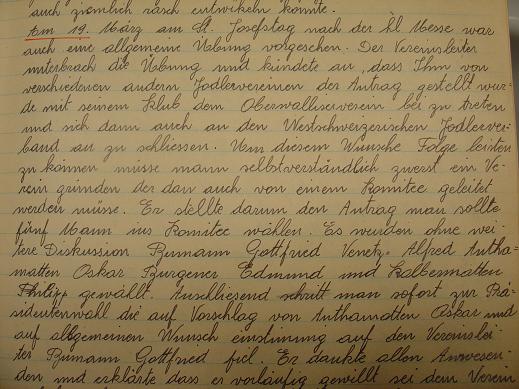 auch ziemlich rasch entwikeln konnte.
Am 19. März am St. Josefstag nach der hl Messe war
auch eine allgemeine Uebung vorgesehen. Der Vereinsleiter
unterbrach die Uebung und kündete an, dass Ihm von
verschiedenen andern Jodlervereinen der Antrag gestellt wur-
de mit seinem Klub dem Oberwalliserverein bei zu treten
und sich dann auch an den Westschweizerischen Jodlerver-
band an zu schliessen. Um diesem Wunsche Folge leisten
zu können müsse mann selbstverständlich zuerst ein Ve-
rein gründen der dan auch von einem Komitee geleitet
werden müsse. Er stellte darum den Antrag man sollte
fünf Mann ins Komitee wählen. Es wurden ohne wei-
tere Diskussion Bumann Gottfried Venetz Alfred Antha-
matten Oskar Burgener Edmund und Kalbermatten
Philipp gewällt. Anschliesend schritt man sofort zur Prä-
sidentenwahl die auf Vorschlag von Anthamatten Oskar und
auf allgemeinen Wunsch einstimung auf den Vereinslei-
ter Bumann Gottfried fiel. Er dankte allen Anwesen-
den und erklärte dass er vorläufig gewillt sei dem Verein